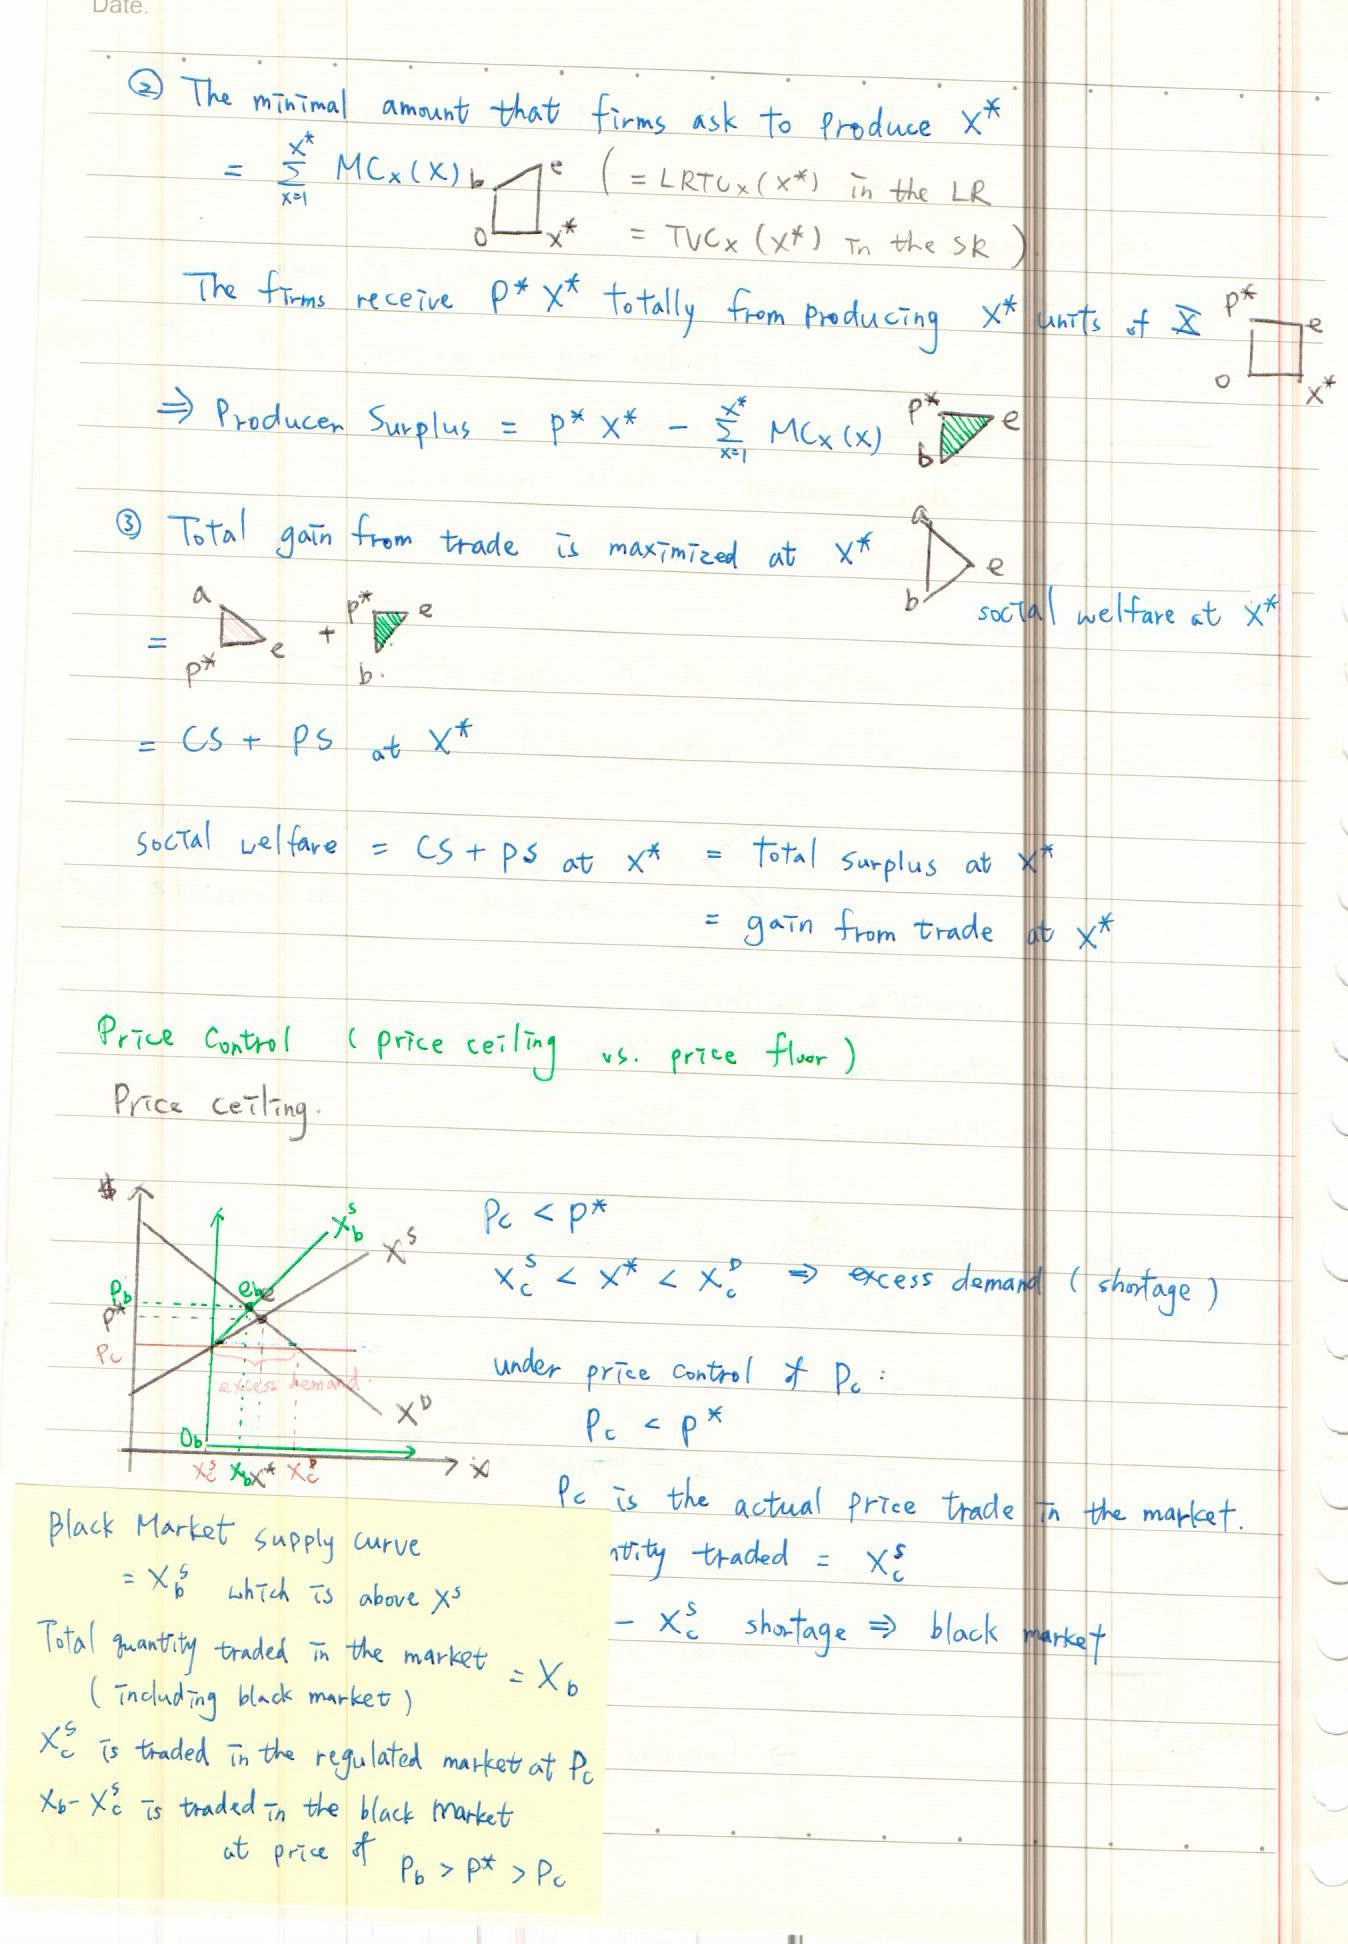 Date.
② The minimal amount that firms ask to produce X*
= Σ_{x=1}^{X*} MCx(X) b e 0 X* ( = LRTCx(X*) in the LR
= TVCx(X*) in the SR )
The firms receive P* X* totally from producing X* units of X P* e 0 X*
⇒ Producer Surplus = P* X* - Σ_{x=1}^{X*} MCx(x) P* e b
③ Total gain from trade is maximized at X* a e b
social welfare at X*
= a P* e + P* e b.
= CS + PS at X*
social welfare = CS + PS at X* = total surplus at X*
= gain from trade at X*
Price Control ( price ceiling vs. price floor )
Price ceiling.
$ X_b^S X^S
P_b e_b e
P*
P_c
excess demand.
X^D
O_b
X_c^S X_b X* X_c^D X
P_c < P*
X_c^S < X* < X_c^D ⇒ excess demand ( shortage )
under price control of P_c :
P_c < P*
P_c is the actual price trade in the market.
ntity traded = X_c^S
- X_c^S shortage ⇒ black market
Black Market supply curve
= X_b^S which is above X^S
Total quantity traded in the market = X_b
( including black market )
X_c^S is traded in the regulated market at P_c
X_b - X_c^S is traded in the black market
at price of P_b > P* > P_c